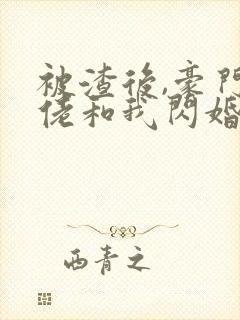 被渣後,豪門
佬和我閃婚
西青之